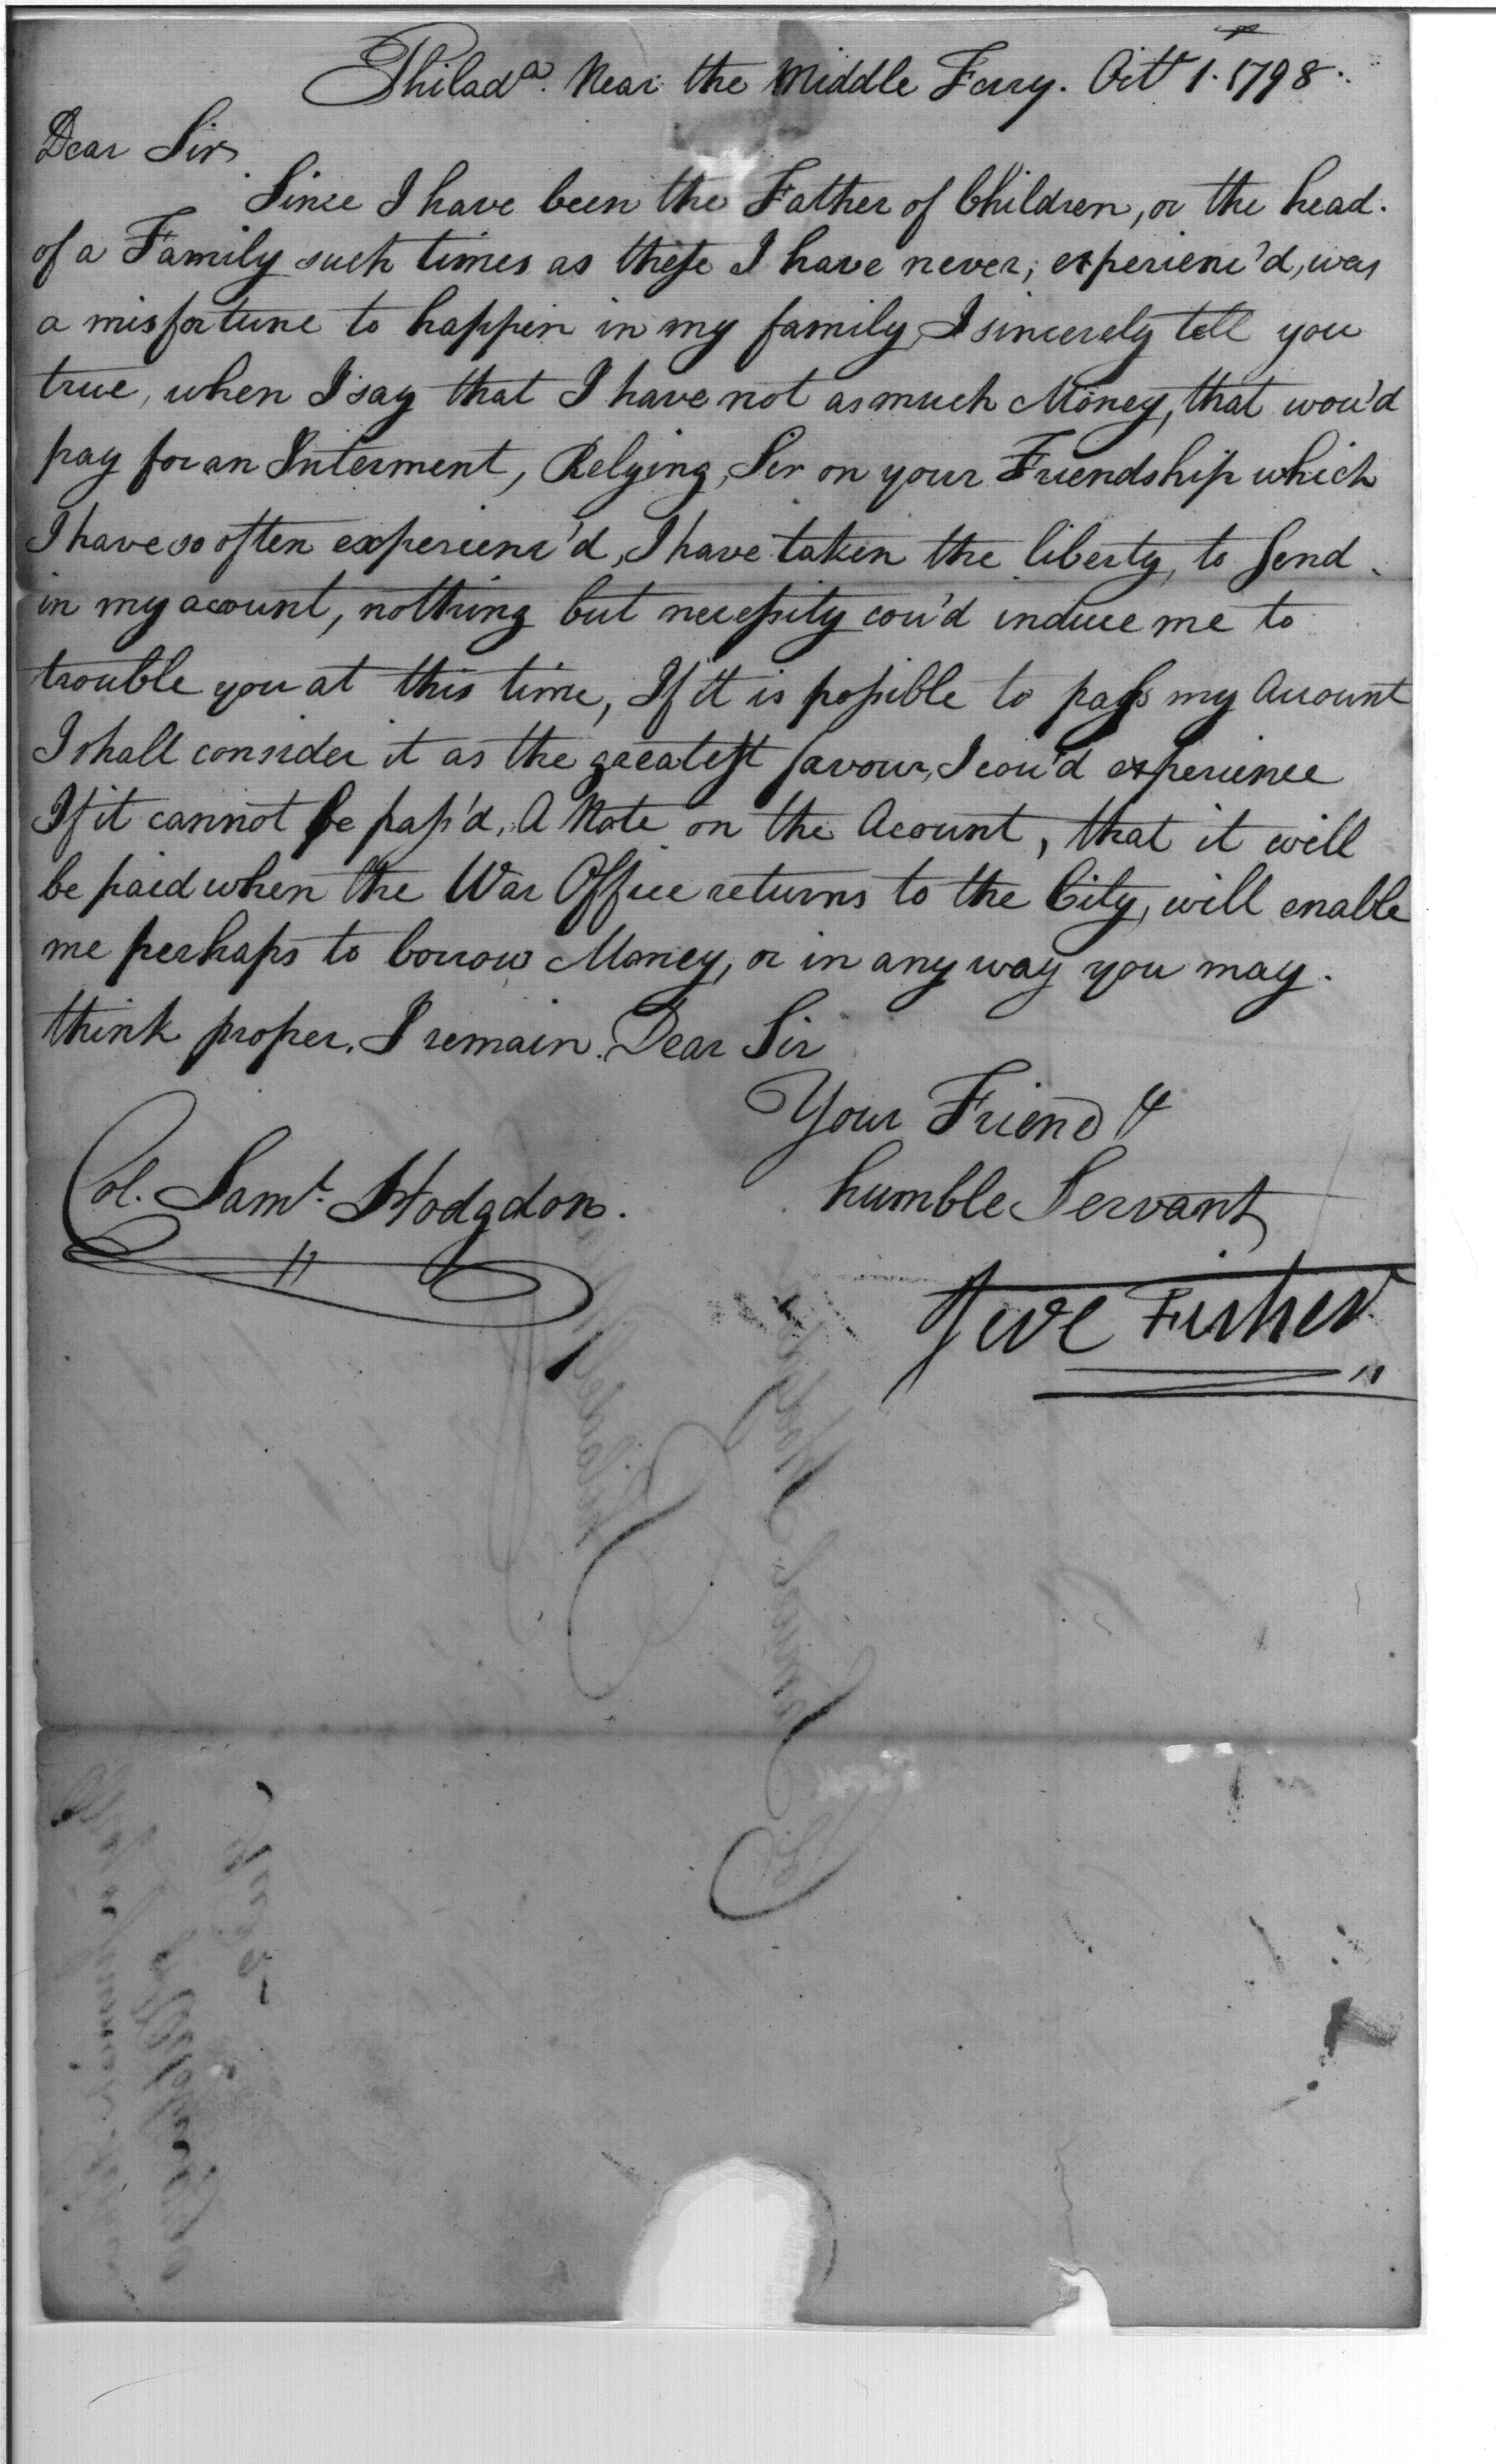 Philada. Near the Middle Ferry. Octr 1. 1798.
Dear Sir
Since I have been the Father of Children, or the head.
of a Family such times as these I have never, experienc'd, was
a misfortune to happen in my family, I sincerely tell you
true, when I say that I have not as much Money, that wou'd
pay for an Interment, Relying, Sir on your Friendship which
I have so often experienc'd, I have taken the liberty, to Send
in my acount, nothing but necessity cou'd induce me to
trouble you at this time, If it is possible to pass my Acount
I shall consider it as the greatest favour, I cou'd experience
If it cannot be pass'd, A Note on the Acount, that it will
be paid when the War Office returns to the City, will enable
me perhaps to borrow Money, or in any way you may.
think proper. I remain. Dear Sir
Your Friend &
humble Servant
Col. Saml. Hodgdon.
Fisher